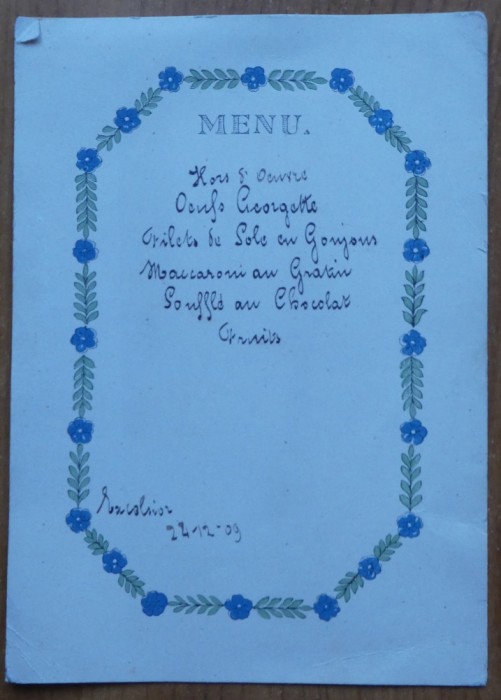 MENU.
Hors d'Oeuvre
Oeufs Georgette
Filets de Sole en Goujons
Maccaroni au Gratin
Soufflé au Chocolat
Fruits
Excelsior
22-12-09